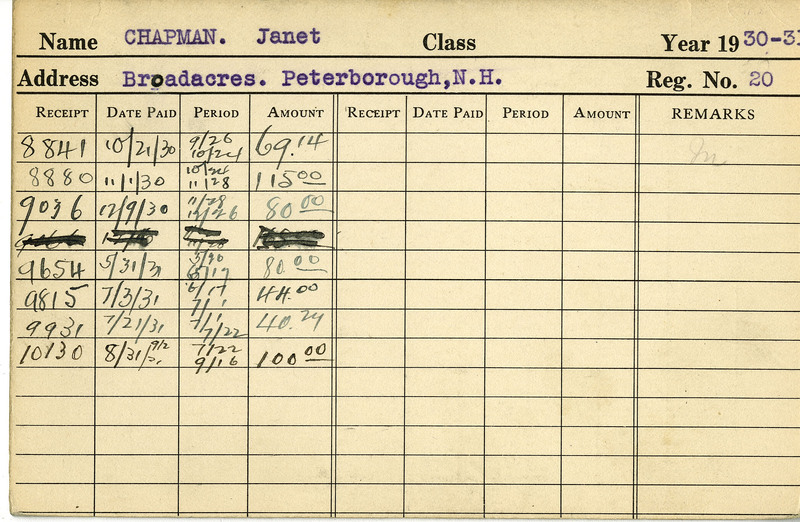 Name CHAPMAN. Janet Class Year 19 30-31
Address Broadacres. Peterborough, N.H. Reg. No. 20
RECEIPT DATE PAID PERIOD AMOUNT RECEIPT DATE PAID PERIOD AMOUNT REMARKS
8841 10/21/30 9/26 10/24 69.14
8880 11/1/30 10/24 11/28 115.00
9036 12/9/30 11/28 12/26 80.00
9654 5/31/31 6/17 80.00
9815 7/3/31 6/17 7/1 44.00
9931 7/21/31 7/1 7/22 40.24
10130 8/31/31 7/22 9/16 100.00